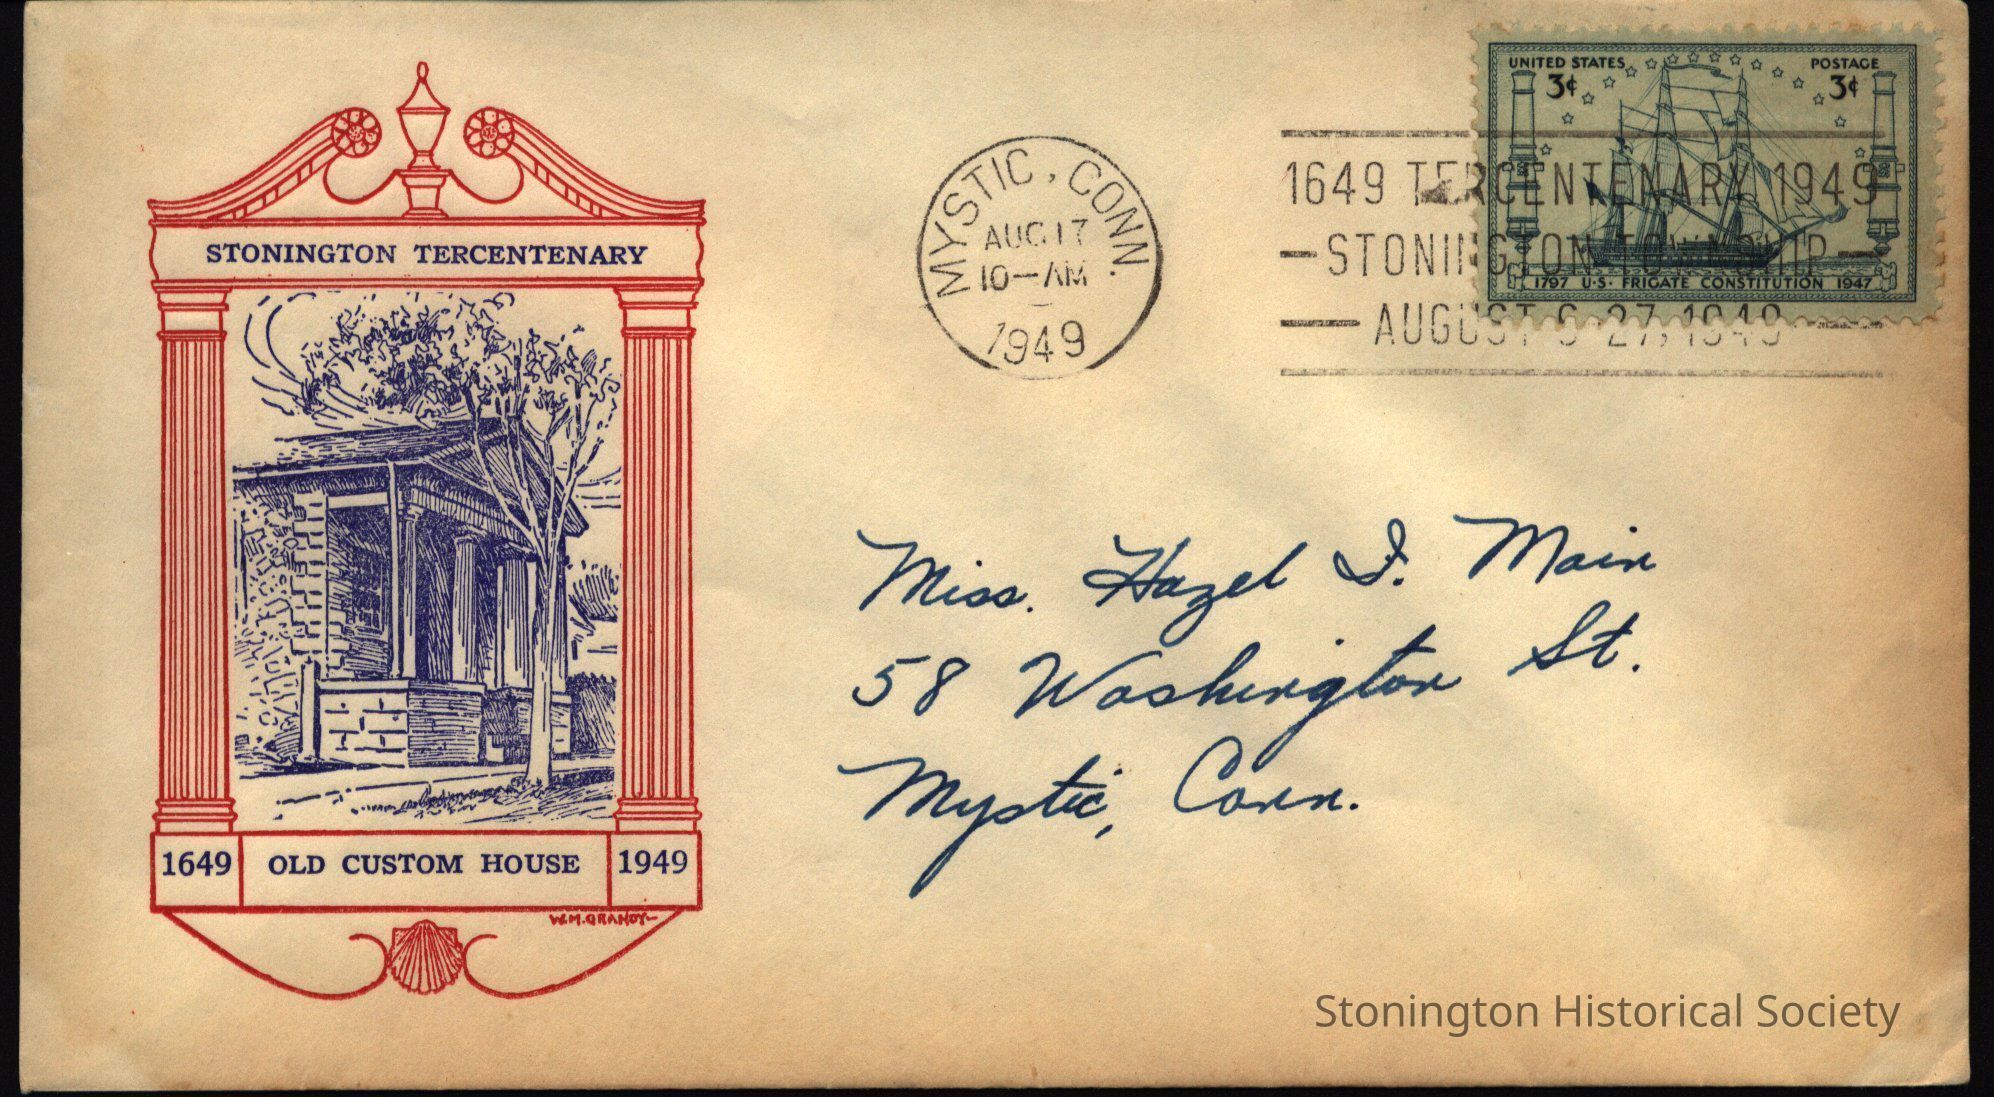 STONINGTON TERCENTENARY
1649 OLD CUSTOM HOUSE 1949
W.M. GRANDY
MYSTIC, CONN.
AUG 17
10—AM
1949
1649 TERCENTENARY 1949
STONINGTON TOWNSHIP
AUGUST 27, 1949
UNITED STATES POSTAGE
3¢ 3¢
1797 U·S· FRIGATE CONSTITUTION 1947
Miss. Hazel I. Main
58 Washington St.
Mystic, Conn.
Stonington Historical Society